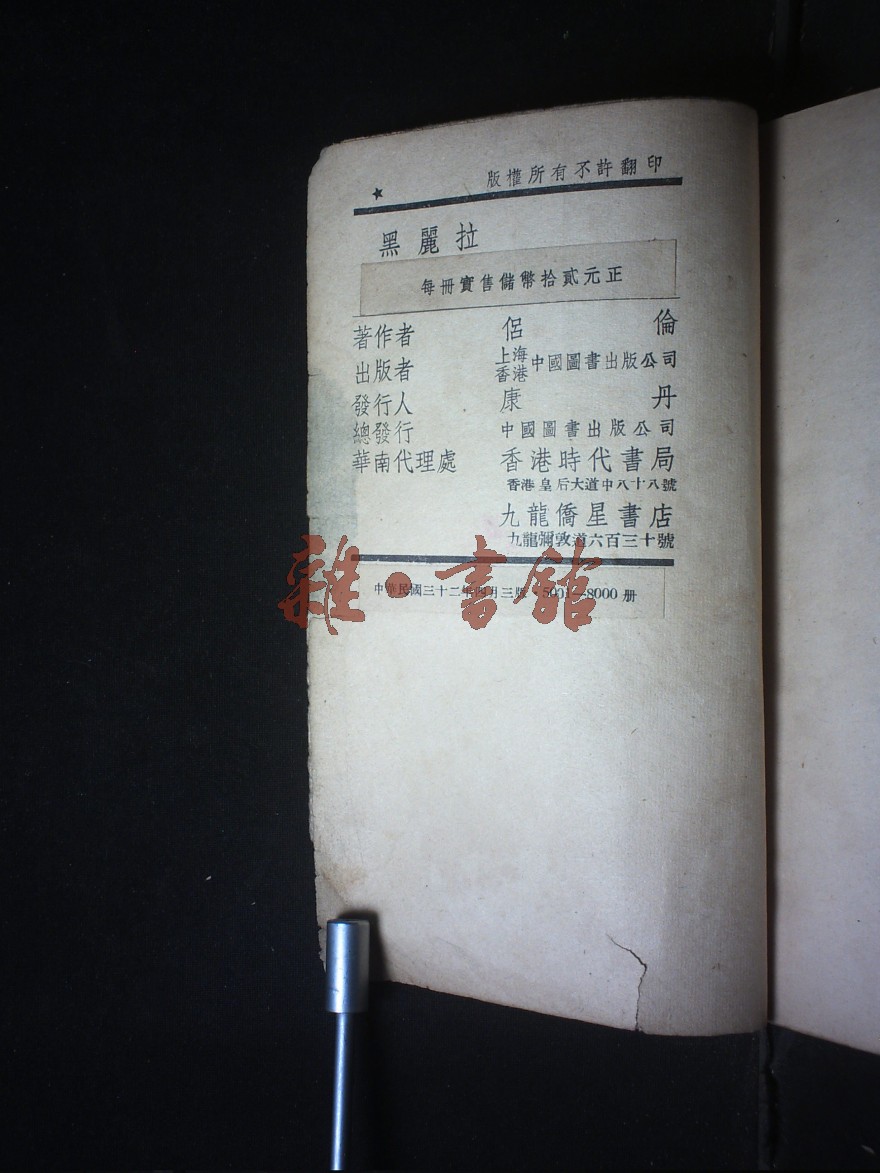 ★ 版權所有不許翻印
黑麗拉
每冊實售儲幣拾貳元正
著作者 侶倫
出版者 上海香港中國圖書出版公司
發行人 康丹
總發行 中國圖書出版公司
華南代理處 香港時代書局
香港皇后大道中八十八號
九龍僑星書店
九龍彌敦道六百三十號
中華民國三十二年四月三版·5001—8000册
雜·書館